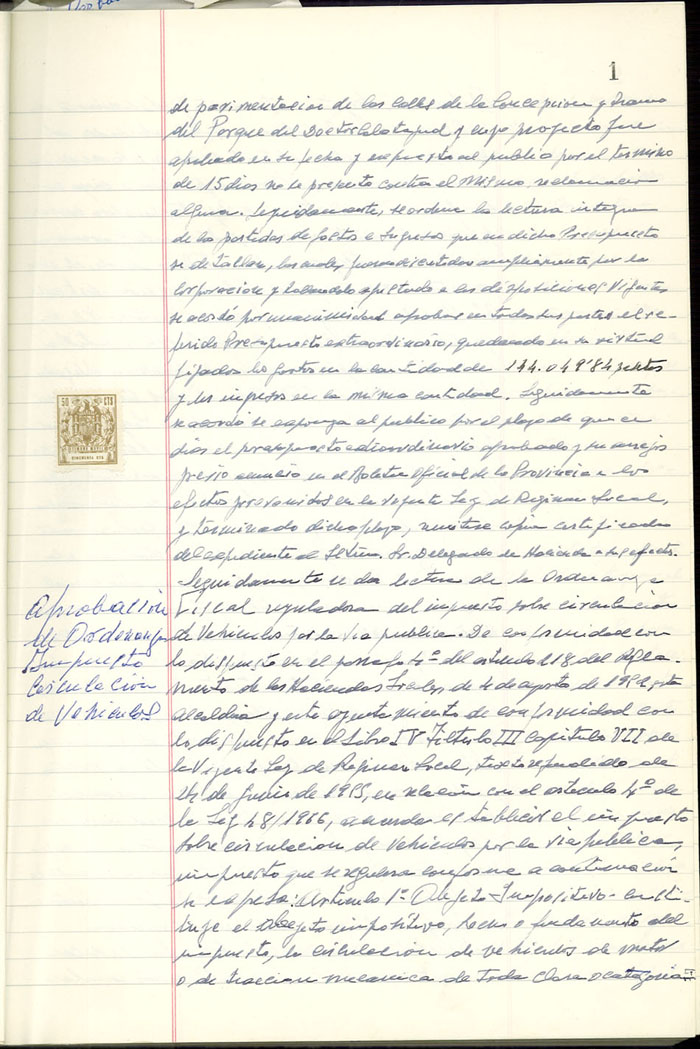 1
de pavimentacion de las Calles de la Concepcion y Tramo
del Parque del Doctor Calatayud y cuyo proyecto fue
aprobado en su fecha y expuesto al publico por el termino
de 15 dias no se presento contra el mismo reclamacion
alguna. Seguidamente, se ordena la lectura integra
de las partidas de Gastos e Ingresos que en dicho Presupuesto
se detallan, las cuales fueron discutidas ampliamente por la
Corporacion y hallandolo ajustado a las disposiciones Vigentes
se acordó por unanimidad aprobar en todas sus partes el re-
ferido Presupuesto extraordinario, quedando en su virtud
fijados los gastos en la cantidad de 144.049'84 pesetas
y los ingresos en la misma cantidad. Seguidamente
se acordó se exponga al publico por el plazo de quince
dias el presupuesto extraordinario aprobado y sus anejos
previo anuncio en el Boletin Oficial de la Provincia a los
efectos prevenidos en la vigente Ley de Regimen Local,
y terminado dicho plazo, remitase copia certificada
del expediente al Iltmo. Sr. Delegado de Hacienda a sus efectos.
Seguidamente se da lectura de la Ordenanza
Fiscal reguladora del impuesto sobre circulacion
de Vehiculos por la via publica. De conformidad con
lo dispuesto en el parrafo 4º del articulo 218 del Regla-
mento de las Haciendas Locales de 4 de agosto de 1952 esta
alcaldia y este ayuntamiento de conformidad con
lo dispuesto en el Libro IV Titulo III Capitulo VII de
la Vigente Ley de Regimen Local, texto refundido de
24 de Junio de 1955, en relación con el articulo 4º de
la Ley 48/1966, acuerda establecer el impuesto
sobre circulacion de Vehiculos por la via publica,
impuesto que se regulara conforme a continuación
se expresa: Articulo 1º Objeto Impositivo - Consti-
tuye el objeto impositivo, hecho o fundamento del
impuesto, la circulacion de vehiculos de motor
o de traccion mecanica de toda clase o categoria
50 CTS
CINCUENTA CTS
Aprobación
de Ordenanza
Impuesto
Circulación
de Vehiculos